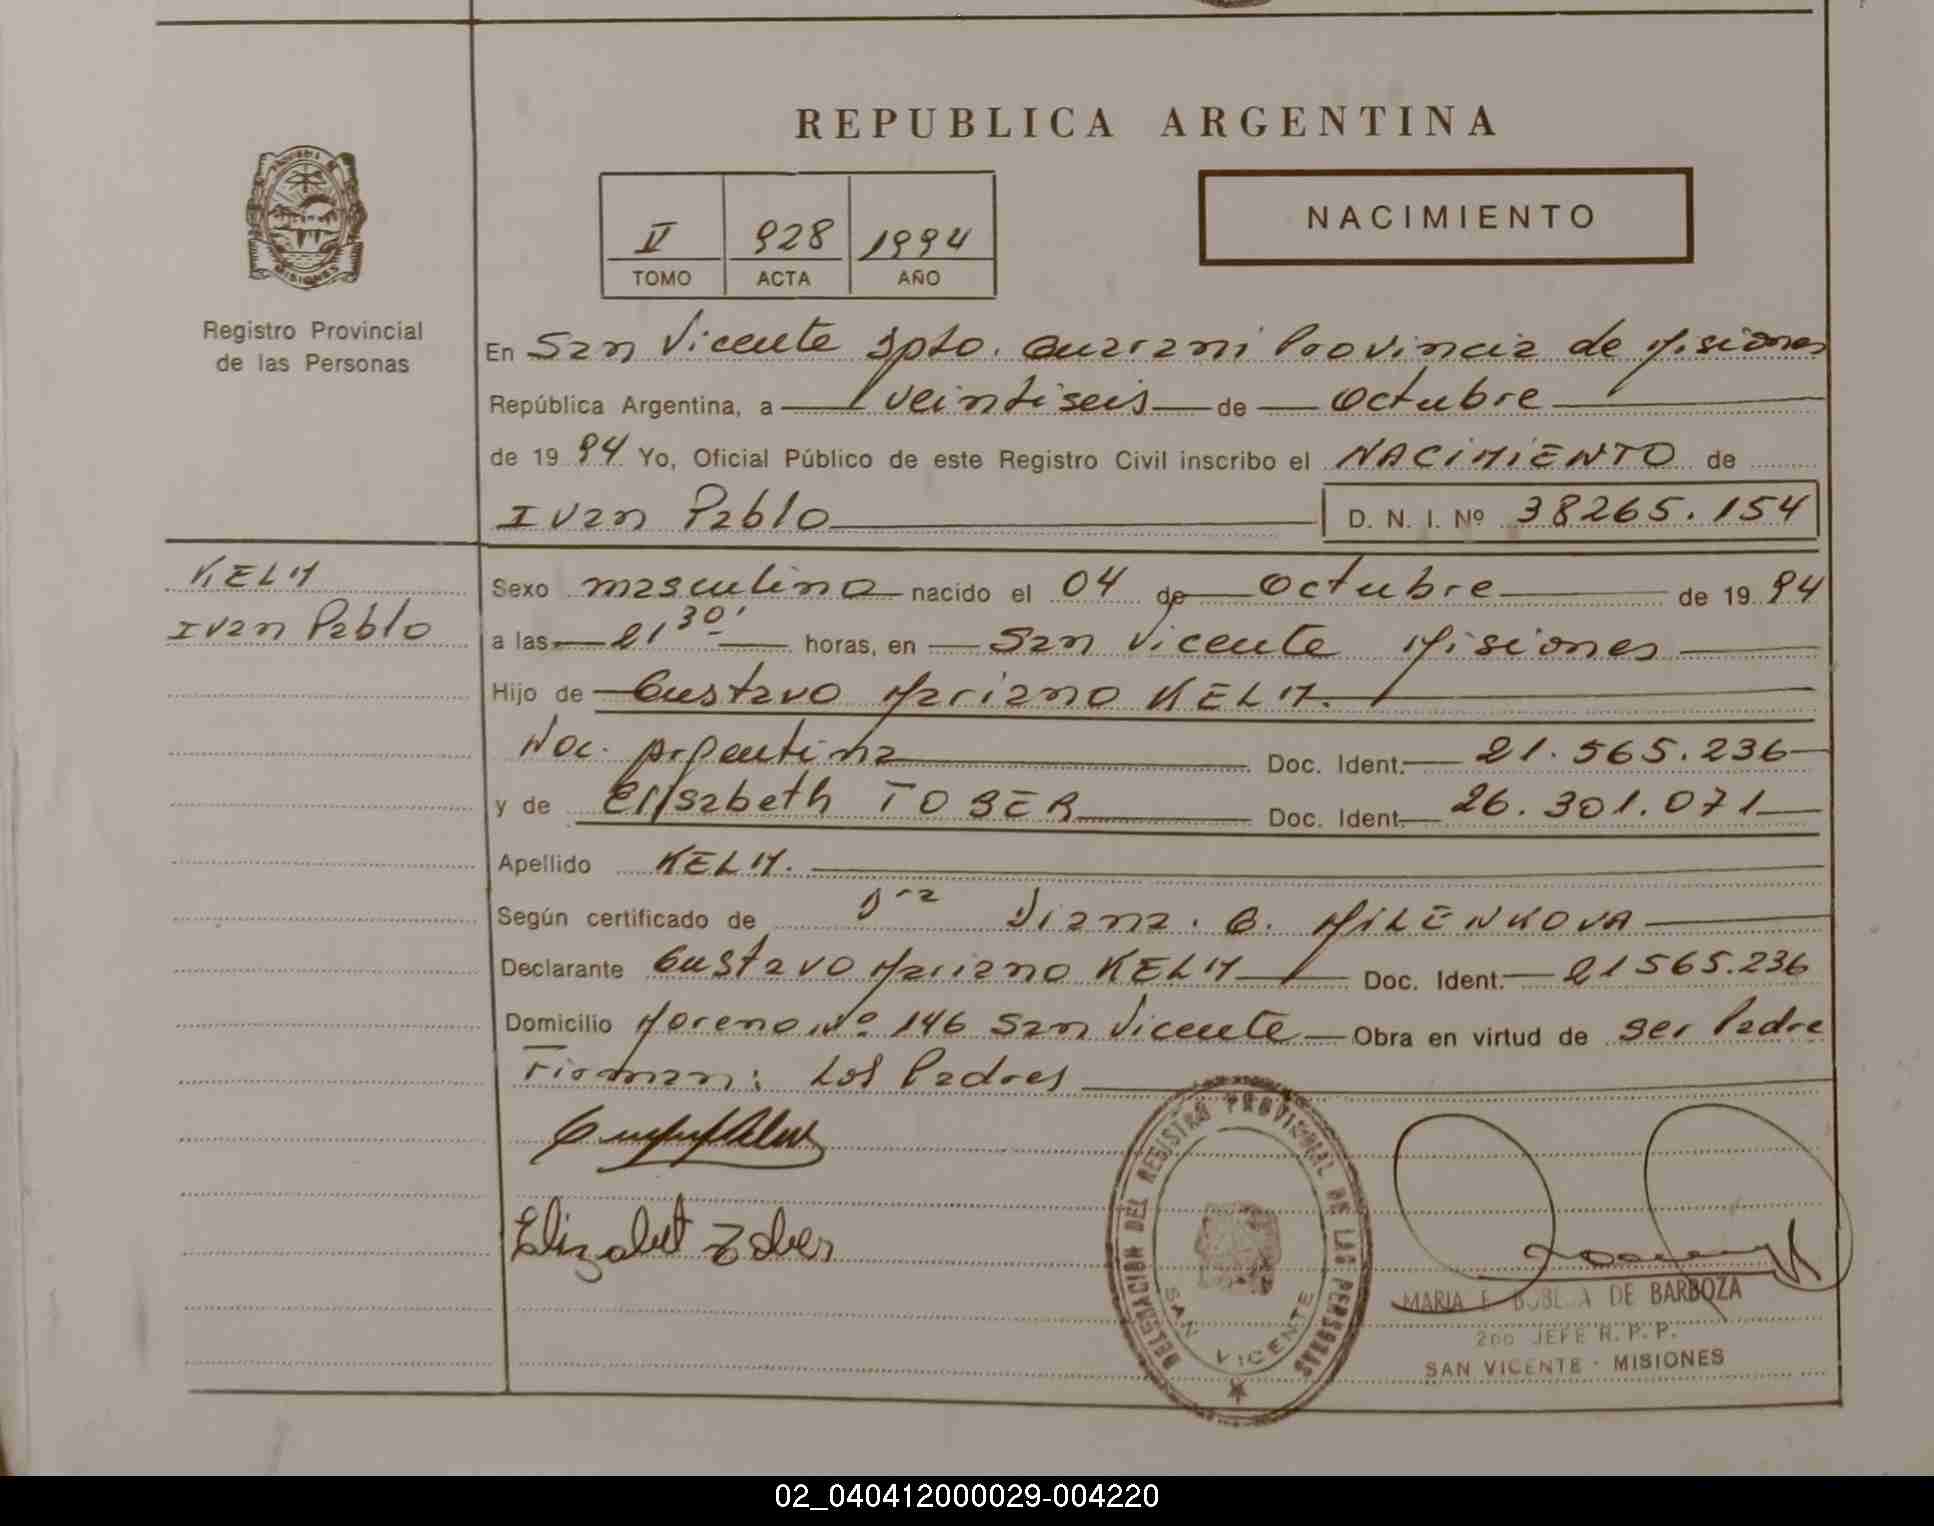 REPUBLICA ARGENTINA
NACIMIENTO
II 928 1994
TOMO ACTA AÑO
Registro Provincial
de las Personas
MISIONES
En San Vicente Dpto. Guarani Provincia de Misiones
República Argentina, a veintiseis de Octubre
de 1994 Yo, Oficial Público de este Registro Civil inscribo el NACIMIENTO de
Ivan Pablo D. N. I. Nº 38265.154
KELM
Ivan Pablo
Sexo masculino nacido el 04 de Octubre de 1994
a las 21 30' horas, en San Vicente Misiones
Hijo de Gustavo Mariano KELM.
Nac. Argentina Doc. Ident. 21.565.236
y de Elisabeth TOBER Doc. Ident. 26.301.071
Apellido KELM.
Según certificado de Dra Diana. B. MILENKOVA
Declarante Gustavo Mariano KELM Doc. Ident. 21565.236
Domicilio Moreno Nº 146 San Vicente Obra en virtud de ser Padre
Firman: Los Padres
Elizabet Tober
DELEGACION DEL REGISTRO PROVINCIAL DE LAS PERSONAS
SAN VICENTE
MARIA E. DE BARBOZA
2do JEFE R. P. P.
SAN VICENTE - MISIONES
02_040412000029-004220